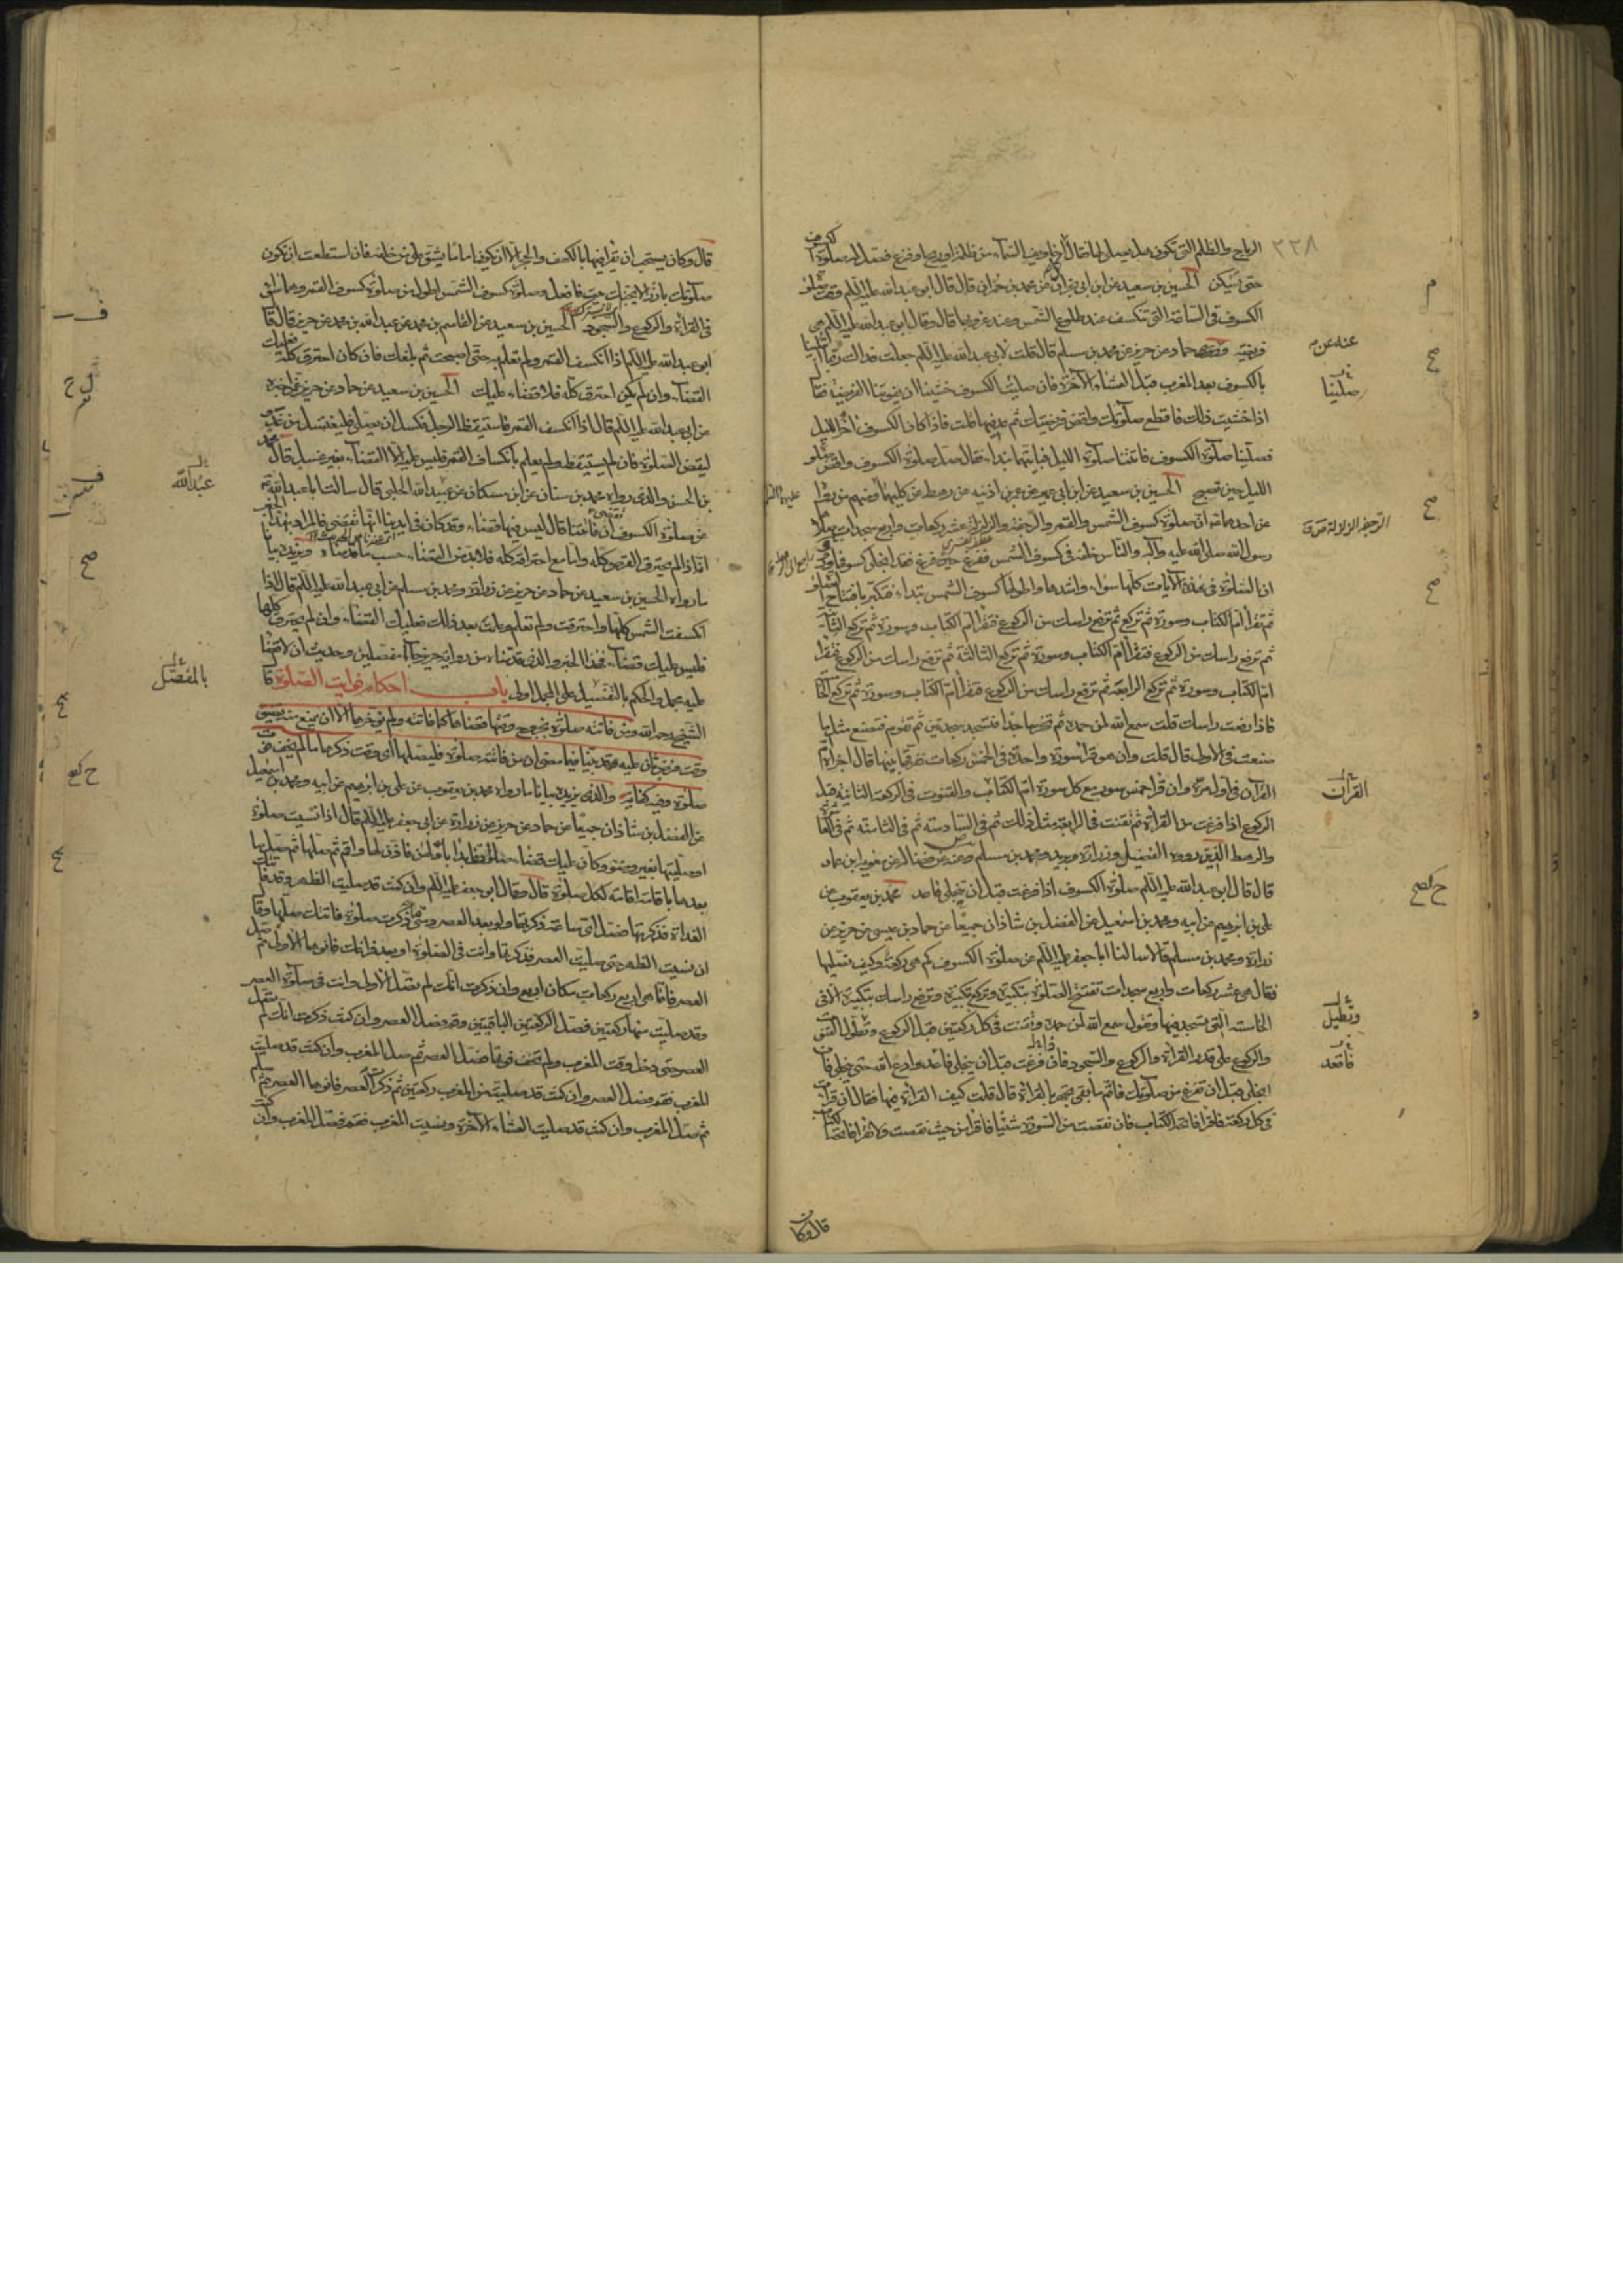 ٣٣٨
الرياح والظلم التي تكون هل يصلى لها فقال كل اخاويف السماء من ظلمة او ريح او فزع فصل له صلوة الكسوف
حتى يسكن الحسين بن سعيد عن ابن ابي عمير عن محمد بن حمران قال قال ابو عبد الله عليه السلم وقت صلوة
الكسوف في الساعة التي تنكسف عند طلوع الشمس وعند غروبها قال وقال ابو عبد الله عليه السلم هي
فريضة حماد عن حريز عن محمد بن مسلم قال قلت لابي عبد الله عليه السلم جعلت فداك ربما ابتلينا
بالكسوف بعد المغرب قبل العشاء الآخرة فان صلينا الكسوف خشينا ان يفوتنا الفريضة فقال
اذا خشيت ذلك فاقطع صلوتك واقض فريضتك ثم عد فيها قلت فاذا كان الكسوف اخر الليل
فصلينا صلوة الكسوف فاتتنا صلوة الليل فبايتهما نبدا فقال صل صلوة الكسوف واقض صلوة
الليل حين تصبح الحسين بن سعيد عن ابن ابي عمير عن عمر بن اذينة عن رهط عن كليهما ومنهم من رواه
عن احدهما ان صلوة كسوف الشمس والقمر والرجفة والزلزلة عشر ركعات واربع سجدات صلاها
رسول الله صلى الله عليه وآله والناس خلفه في كسوف الشمس ففرغ حين فرغ وقد انجلى كسوفها ورووا
ان الصلوة في هذه الآيات كلها سواء واشدها واطولها كسوف الشمس تبدا فتكبر بافتتاح الصلوة
ثم تقرأ ام الكتاب وسورة ثم تركع ثم ترفع راسك من الركوع فتقرأ ام الكتاب وسورة ثم تركع الثانية
ثم ترفع راسك من الركوع فتقرأ ام الكتاب وسورة ثم تركع الثالثة ثم ترفع راسك من الركوع فتقرأ
ام الكتاب وسورة ثم تركع الرابعة ثم ترفع راسك من الركوع فتقرأ ام الكتاب وسورة ثم تركع الخامسة
فاذا رفعت راسك قلت سمع الله لمن حمده ثم تخر ساجدا فتسجد سجدتين ثم تقوم فتصنع مثل ما
صنعت في الاولى قال قلت وان هو قرأ سورة واحدة في الخمس ركعات ففرقها بينها قال اجزأه ام
القرآن في اول مرة وان قرأ خمس سور مع كل سورة ام الكتاب والقنوت في الركعة الثانية قبل
الركوع اذا فرغت من القراءة ثم تقنت في الرابعة مثل ذلك ثم في السادسة ثم في الثامنة ثم في العاشرة
والرهط الذين رووه الفضيل وزرارة وبريد ومحمد بن مسلم وعنه عن فضالة عن معوية بن عمار
قال قال ابو عبد الله عليه السلم صلوة الكسوف اذا فرغت قبل ان ينجلي فاعد محمد بن يعقوب عن
علي بن ابرهيم عن ابيه ومحمد بن اسمعيل عن الفضل بن شاذان جميعا عن حماد بن عيسى عن حريز عن
زرارة ومحمد بن مسلم قالا سالنا ابا جعفر عليه السلم عن صلوة الكسوف كم هي ركعة وكيف نصليها
فقال هي عشر ركعات واربع سجدات تفتتح الصلوة بتكبيرة وتركع بتكبيرة وترفع راسك بتكبيرة الا في
الخامسة التي تسجد فيها وتقول سمع الله لمن حمده وتقنت في كل ركعتين قبل الركوع وتطول القنوت
والركوع على قدر القراءة والركوع والسجود فان فرغت قبل ان ينجلي فاقعد وادع الله حتى ينجلي فان
انجلى قبل ان تفرغ من صلوتك فاتم ما بقي تجهر بالقراءة قال قلت كيف القراءة فيها فقال ان قرأت
في كل ركعة فاقرأ فاتحة الكتاب فان نقصت من السورة شيئا فاقرأ من حيث نقصت ولا تقرأ فاتحة الكتاب
قال وكان
عنه عن
صلينا
القرآن
وتطيل
فاقعد
قال وكان يستحب ان يقرأ فيها بالكهف والحجر الا ان يكون اماما يشق على من خلفه فان استطعت ان تكون
صلوتك بارزا لا يجنك بيت فافعل وصلوة كسوف الشمس اطول من صلوة كسوف القمر وهما سواء
في القراءة والركوع والسجود الحسين بن سعيد عن القاسم بن محمد عن عبد الله بن محمد عن حريز قال قال
ابو عبد الله عليه السلم اذا انكسف القمر ولم تعلم به حتى اصبحت ثم بلغك فان كان احترق كله فعليك
القضاء وان لم يكن احترق كله فلا قضاء عليك الحسين بن سعيد عن حماد عن حريز عمن اخبره
عن ابي عبد الله عليه السلم قال اذا انكسف القمر فاستيقظ الرجل فكسل ان يصلي فليغتسل من غد
ليقض الصلوة فان لم يستيقظ ولم يعلم بانكساف القمر فليس عليه الا القضاء بغير غسل قال محمد
بن الحسن والذي رواه محمد بن سنان عن ابن مسكان عن عبيد الله الحلبي قال سالت ابا عبد الله
عن صلوة الكسوف تقضى اذا فاتتنا قال ليس فيها قضاء وقد كان في ايدينا انها تقضى فالمراد بهذا الخبر
اذا لم يحترق القرص كله واما مع احتراقه كله فلا بد من القضاء حسب ما قدمناه ويزيده بيانا
ما رواه الحسين بن سعيد عن حماد عن حريز عن زرارة ومحمد بن مسلم عن ابي عبد الله عليه السلم قال اذا
انكسفت الشمس كلها واحترقت ولم تعلم وعلمت بعد ذلك فعليك القضاء وان لم يحترق كلها
فليس عليك قضاء فهذا الخبر والذي قدمناه من رواية حريز جاءا مفصلين وحديث ان لا قضاء
عليه مجمل والحكم بالتفصيل على المجمل اولى باب احكام فوايت الصلوة قال
الشيخ رحمه الله ومن فاتته صلوة بخروج وقتها قضاها كما فاتته ولم يؤخرها الا ان يمنع منه تضيق
وقت فرض ثان عليه وقد بينا فيما مضى ان من فاتته صلوة فليصلها اي وقت ذكرها ما لم يخف فوت
صلوة وفيه كفاية والذي يزيده بيانا ما رواه محمد بن يعقوب عن علي بن ابرهيم عن ابيه ومحمد بن اسمعيل
عن الفضل بن شاذان جميعا عن حماد عن حريز عن زرارة عن ابي جعفر عليه السلم قال اذا نسيت صلوة
او صليتها بغير وضوء وكان عليك قضاء صلوات فابدا باولهن فاذن لها واقم ثم صلها ثم صل ما
بعدها باقامة اقامة لكل صلوة قال وقال ابو جعفر عليه السلم وان كنت قد صليت الظهر وقد فاتتك
الغداة فذكرتها فصل اي ساعة ذكرتها ولو بعد العصر ومتى ما ذكرت صلوة فاتتك صليتها وقال
ان نسيت الظهر حتى صليت العصر فذكرتها وانت في الصلوة او بعد فراغك فانوها الاولى ثم صل
العصر فانما هي اربع ركعات مكان اربع وان ذكرت انك لم تصل الاولى وانت في صلوة العصر
وقد صليت منها ركعتين فصل الركعتين الباقيتين وقم فصل العصر وان كنت ذكرت انك لم تصل
العصر حتى دخل وقت المغرب ولم تخف فوتها فصل العصر ثم صل المغرب وان كنت قد صليت
المغرب فقم فصل العصر وان كنت قد صليت من المغرب ركعتين ثم ذكرت العصر فانوها العصر ثم سلم
ثم صل المغرب وان كنت قد صليت العشاء الآخرة ونسيت المغرب فقم فصل المغرب وان كنت
عبد الله
بالمفصل